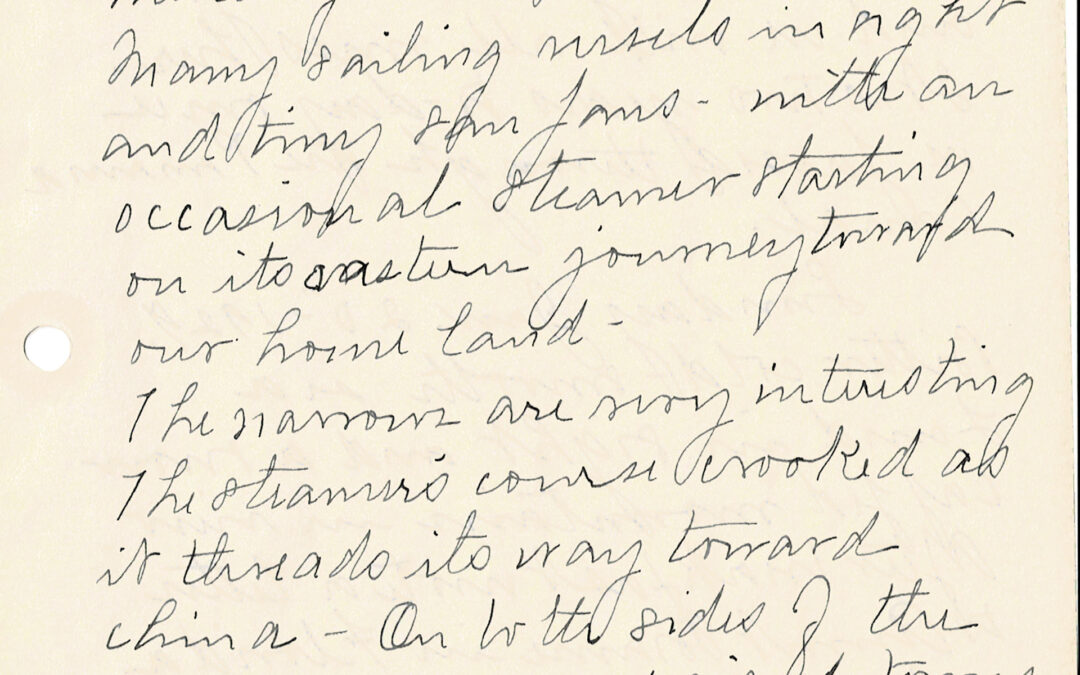 Many sailing vessels in sight
and tiny san pans - with an
occasional steamer starting
on its eastern journey toward
our home land -
The narrows are very interesting
The steamer's course crooked as
it threads its way toward
china - On both sides of the